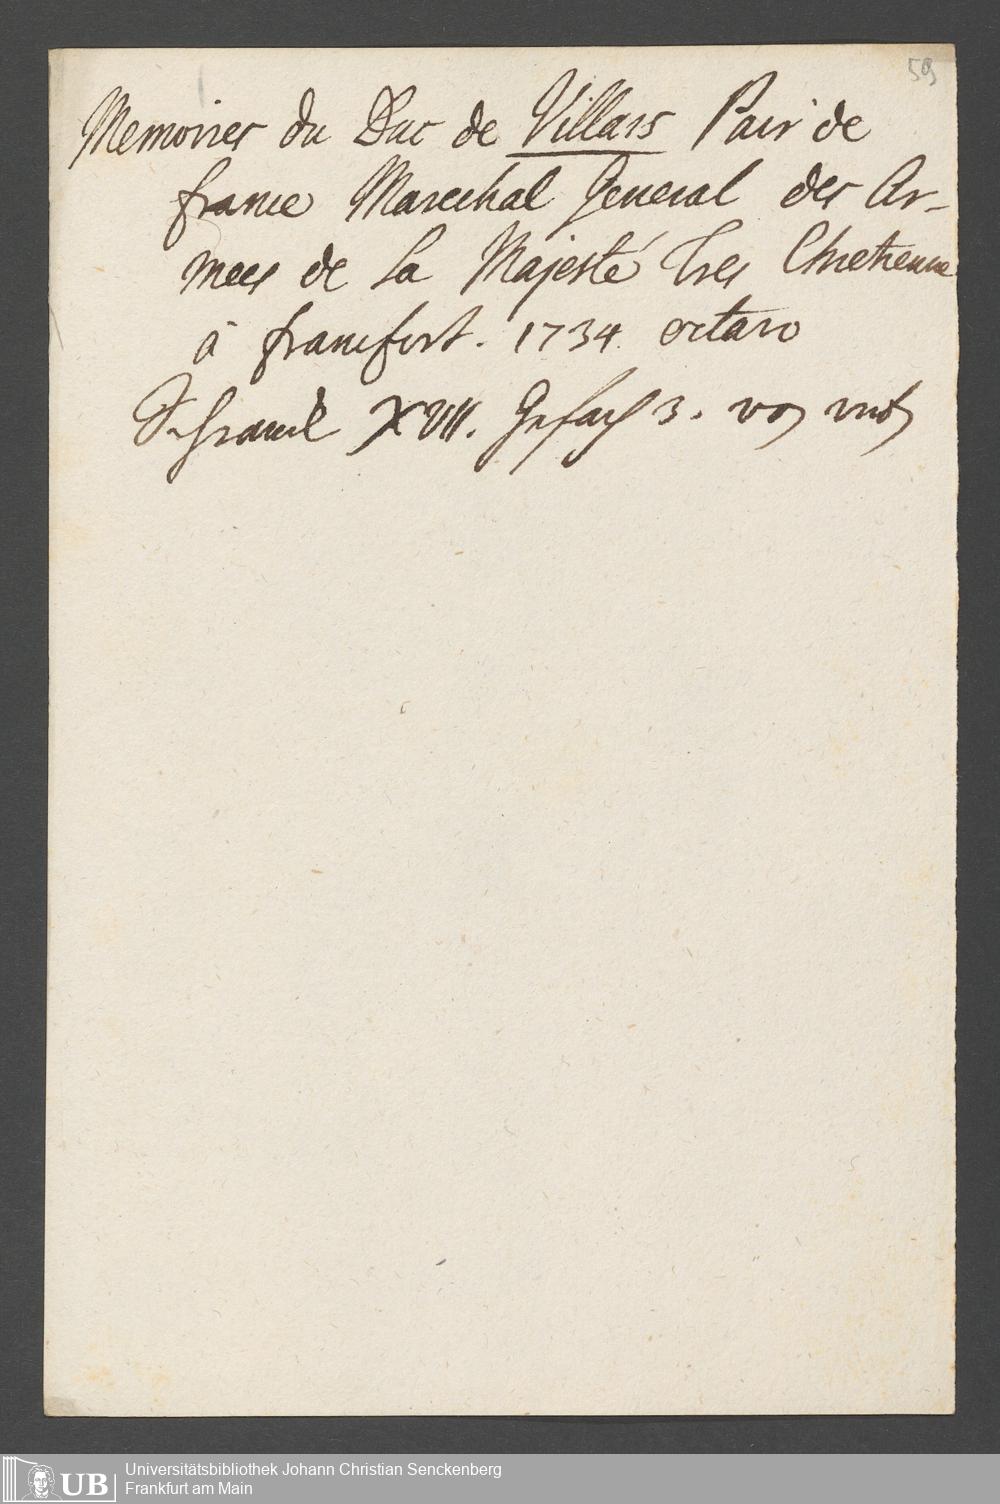 59
Memoires du Duc de Villars Pair de
france Marechal General des Ar-
mees de Sa Majesté Tres Chretienne
à francfort. 1734 octavo
Schranck XVII. Gefach 3. von unten
UB Universitätsbibliothek Johann Christian Senckenberg
Frankfurt am Main